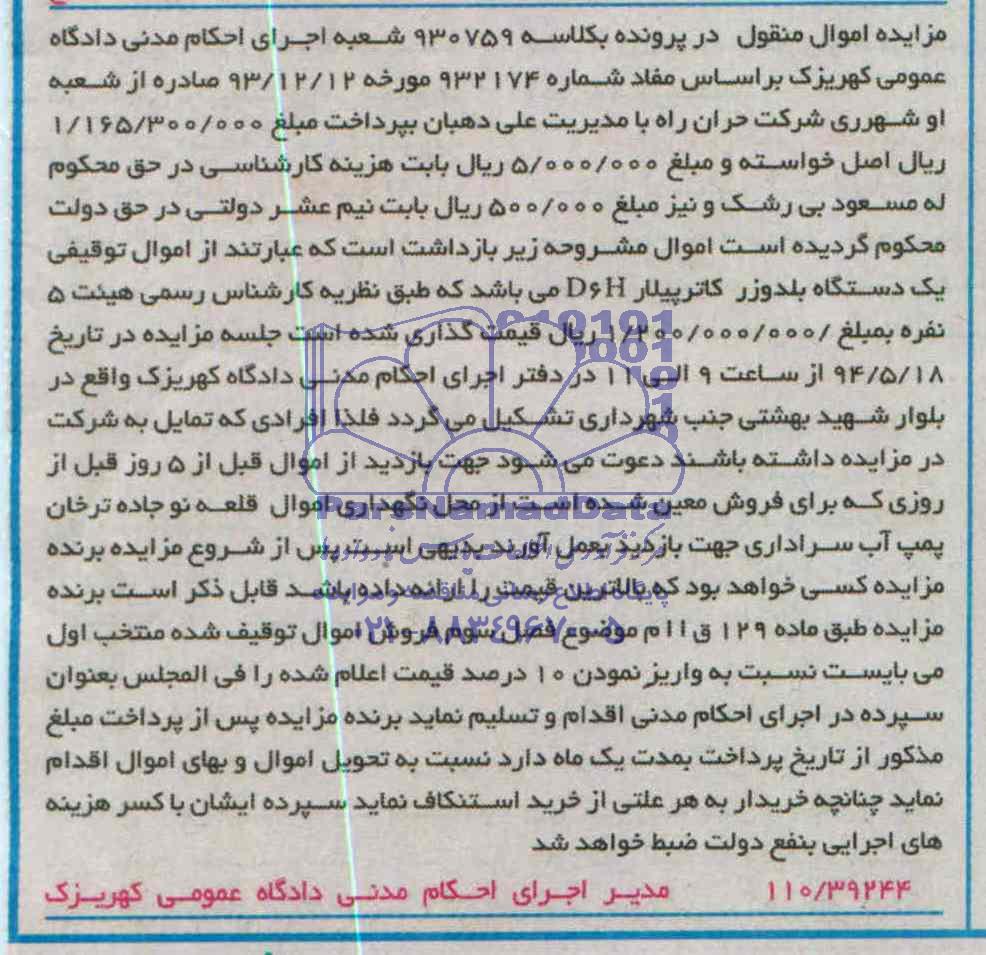 مزایده اموال منقول در پرونده بکلاسه ۹۳۰۷۵۹ شعبه اجرای احکام مدنی دادگاه
عمومی کهریزک براساس مفاد شماره ۹۳۲۱۷۴ مورخه ۹۳/۱۲/۱۲ صادره از شعبه
او شهرری شرکت حران راه با مدیریت علی دهبان بپرداخت مبلغ ۱/۱۶۵/۳۰۰/۰۰۰
ریال اصل خواسته و مبلغ ۵/۰۰۰/۰۰۰ ریال بابت هزینه کارشناسی در حق محکوم
له مسعود بی رشک و نیز مبلغ ۵۰۰/۰۰۰ ریال بابت نیم عشر دولتی در حق دولت
محکوم گردیده است اموال مشروحه زیر بازداشت است که عبارتند از اموال توقیفی
یک دستگاه بلدوزر کاترپیلار D۶H می باشد که طبق نظریه کارشناس رسمی هیئت ۵
نفره بمبلغ /۱/۲۰۰/۰۰۰/۰۰۰ ریال قیمت گذاری شده است جلسه مزایده در تاریخ
۹۴/۵/۱۸ از ساعت ۹ الی ۱۱ در دفتر اجرای احکام مدنی دادگاه کهریزک واقع در
بلوار شهید بهشتی جنب شهرداری تشکیل می گردد فلذا افرادی که تمایل به شرکت
در مزایده داشته باشند دعوت می شود جهت بازدید از اموال قبل از ۵ روز قبل از
روزی که برای فروش معین شده است از محل نگهداری اموال قلعه نو جاده ترخان
پمپ آب سراداری جهت بازدید بعمل آورند بدیهی است پس از شروع مزایده برنده
مزایده کسی خواهد بود که بالاترین قیمت را ارائه داده باشد قابل ذکر است برنده
مزایده طبق ماده ۱۲۹ ق ا ا م موضوع فصل سوم فروش اموال توقیف شده منتخب اول
می بایست نسبت به واریز نمودن ۱۰ درصد قیمت اعلام شده را فی المجلس بعنوان
سپرده در اجرای احکام مدنی اقدام و تسلیم نماید برنده مزایده پس از پرداخت مبلغ
مذکور از تاریخ پرداخت بمدت یک ماه دارد نسبت به تحویل اموال و بهای اموال اقدام
نماید چنانچه خریدار به هر علتی از خرید استنکاف نماید سپرده ایشان با کسر هزینه
های اجرایی بنفع دولت ضبط خواهد شد
۱۱۰/۳۹۲۴۴ مدیر اجرای احکام مدنی دادگاه عمومی کهریزک
ParsNamadData
۰۲۱-۸۸۳۴۹۶۷۰-۵